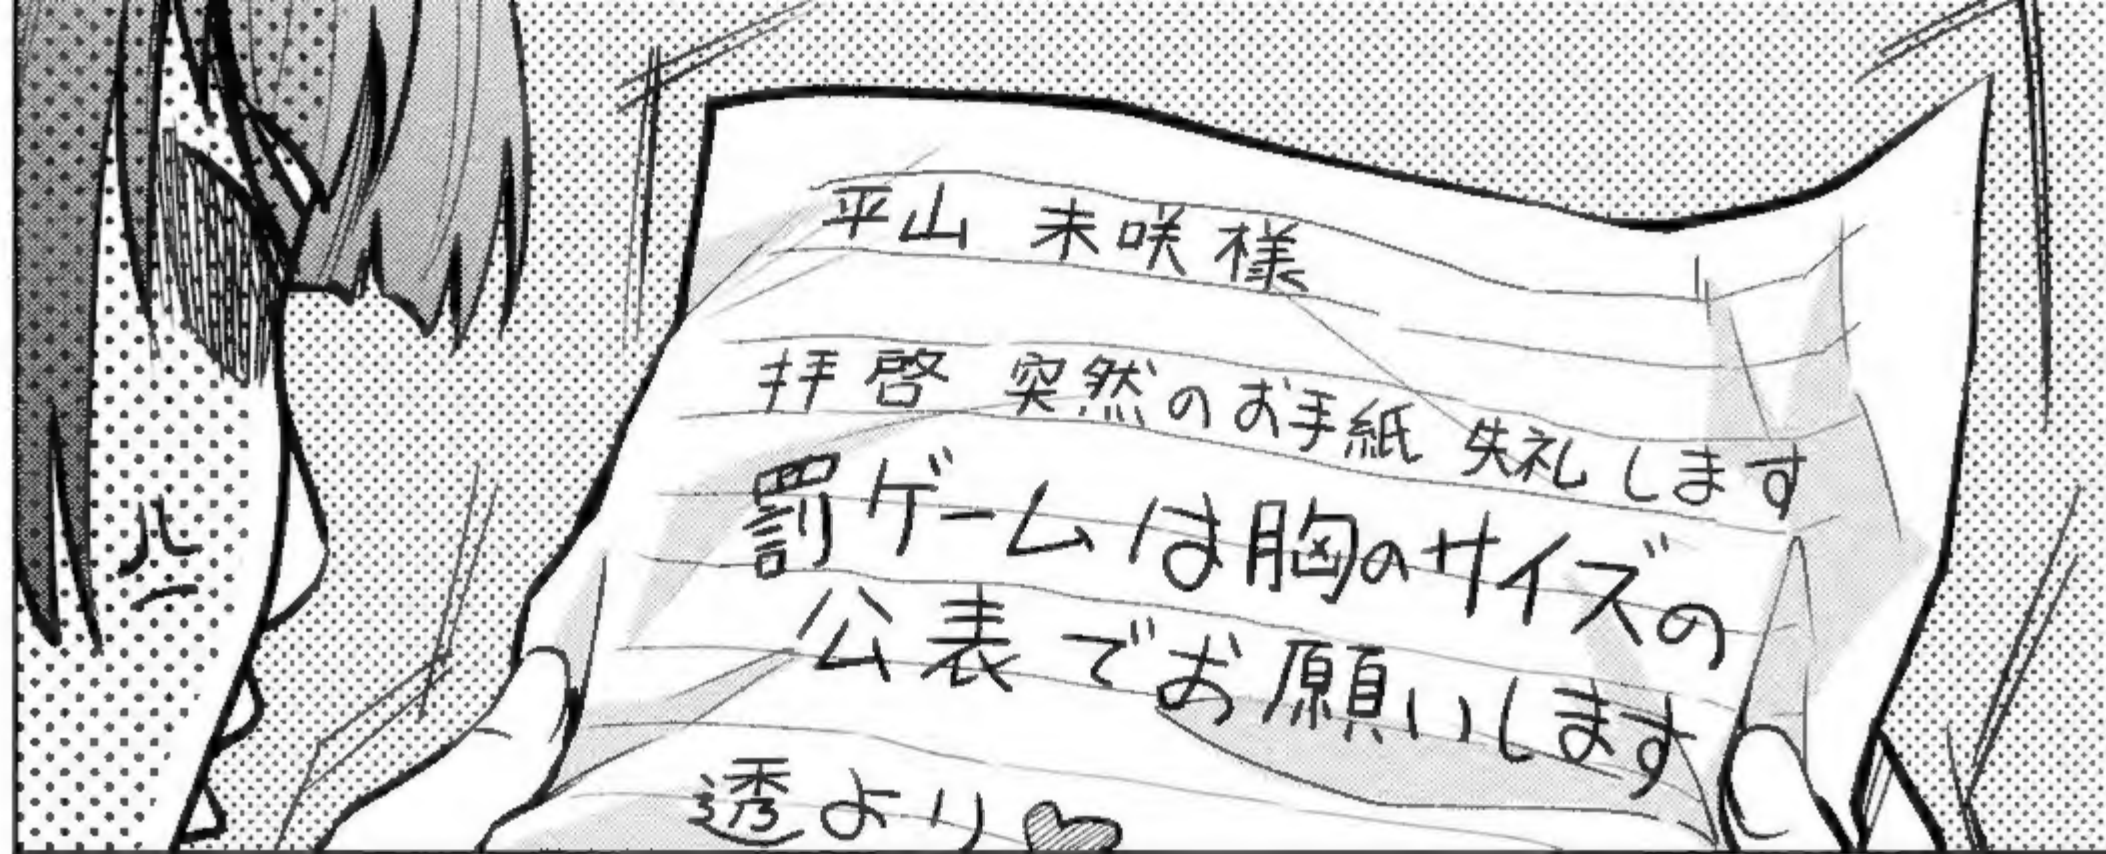 平山 未咲様
拝啓 突然のお手紙 失礼します
罰ゲームは胸のサイズの
公表でお願いします
透より♥